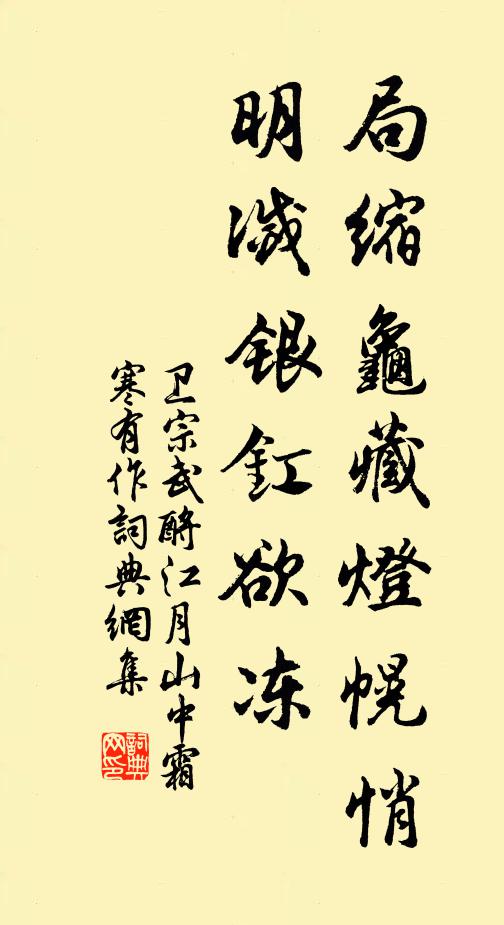 局縮龜藏燈幌悄
明滅銀釭欲冻
卫宗武酹江月山中霜
寒有作詞典網集
詞典網印